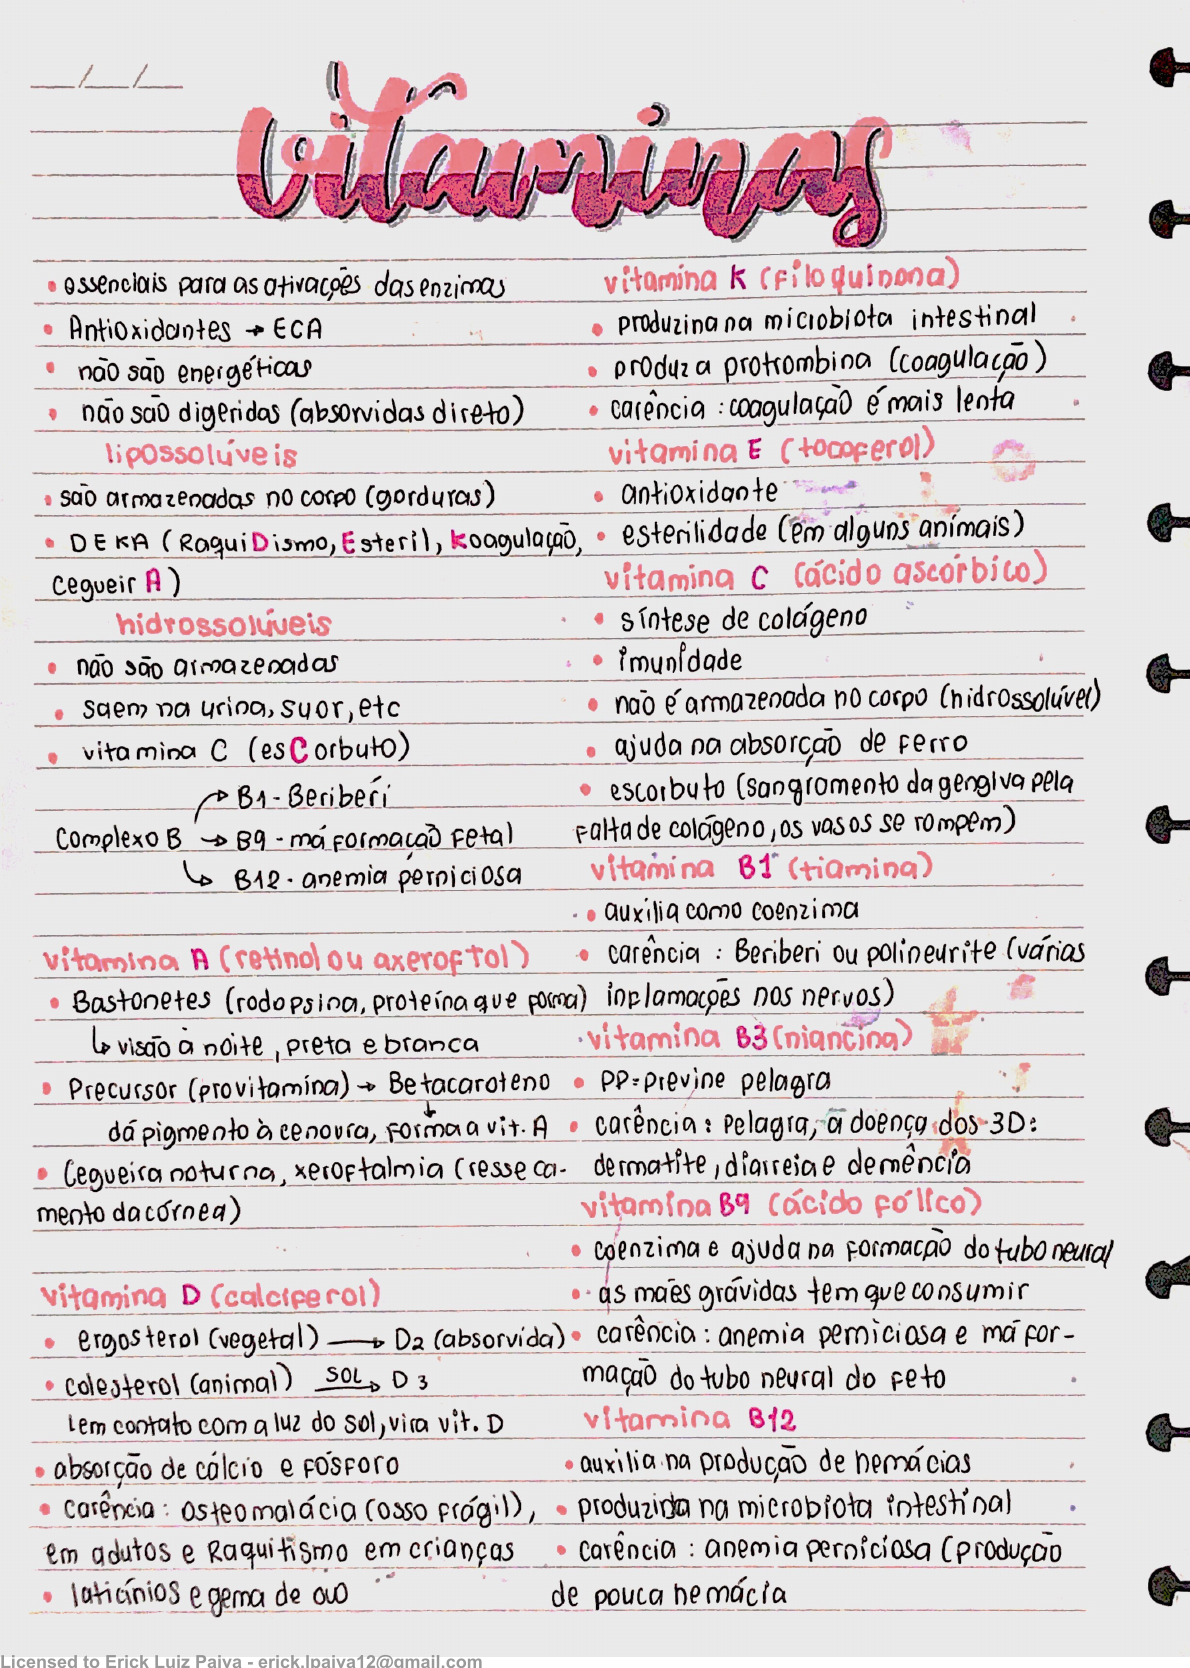 __/__/__
vitaminas
• essenciais para as ativações das enzimas
• Antioxidantes → ECA
• não são energéticas
• não são digeridas (absorvidas direto)
lipossolúveis
• são armazenadas no corpo (gorduras)
• DEKA (RaquiDismo, Esteril, Koagulação,
CegueirA)
hidrossolúveis
• não são armazenadas
• saem na urina, suor, etc
• vitamina C (esCorbuto)
→ B1 - Beriberí
Complexo B → B9 - má formação fetal
↳ B12 - anemia perniciosa
vitamina A (retinol ou axeroftol)
• Bastonetes (rodopsina, proteína que forma)
↳ visão à noite, preta e branca
• Precursor (provitamina) → Betacaroteno
↓
dá pigmento à cenoura, forma a vit. A
• Cegueira noturna, xeroftalmia (resseca-
mento da córnea)
vitamina D (calciferol)
• ergosterol (vegetal) → D2 (absorvida)
• colesterol (animal) SOL→ D3
↳ em contato com a luz do sol, vira vit. D
• absorção de cálcio e fósforo
• carência: osteomalácia (osso frágil),
em adutos e Raquitismo em crianças
• laticínios e gema de ovo
vitamina K (filoquinona)
• produzina na microbiota intestinal
• produz a protrombina (coagulação)
• carência: coagulação é mais lenta
vitamina E (tocoferol)
• antioxidante
• esterilidade (em alguns animais)
vitamina C (ácido ascórbico)
• síntese de colágeno
• imunidade
• não é armazenada no corpo (hidrossolúvel)
• ajuda na absorção de ferro
• escorbuto (sangramento da gengiva pela
falta de colágeno, os vasos se rompem)
vitamina B1 (tiamina)
• auxilia como coenzima
• carência: Beriberi ou polineurite (várias
inflamações nos nervos)
vitamina B3 (niancina)
• PP=previne pelagra
• carência: Pelagra, a doença dos 3D:
dermatite, diarreia e demência
vitamina B9 (ácido fólico)
• coenzima e ajuda na formação do tubo neural
• as mães grávidas tem que consumir
• carência: anemia perniciosa e má for-
mação do tubo neural do feto
vitamina B12
• auxilia na produção de hemácias
• produzida na microbiota intestinal
• carência: anemia perniciosa (produção
de pouca hemácia
Licensed to Erick Luiz Paiva - erick.lpaiva12@gmail.com